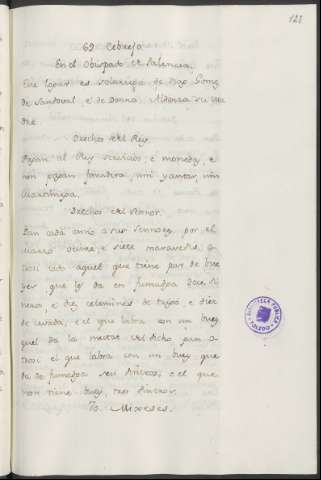 121
69 Cebreja
En el Obispado de Palencia.
Este logar es solariego de Diego Gomez
de Sandoval, e de Donna Aldonza su Ma
dre.
Drechos del Rey.
Pagan al Rey servicios, e monedas, e
non pagan fonsadera, nin yantar, nin
Martiniega.
Drechos del Sennor.
Dan cada anno a sus Sennores por el
marzo veinte, e siete maravedis,
dan cada aquel que tiene par de bue
yes, que les da en fumadga doce di
neros, e diez celemines de trigo, e diez
de cevada, e el que labra con un buey
quel da la meitat del dicho, para
el que labra con un buey que
da de fumadga seis dineros, e el que
non tiene buey, tres dineros.